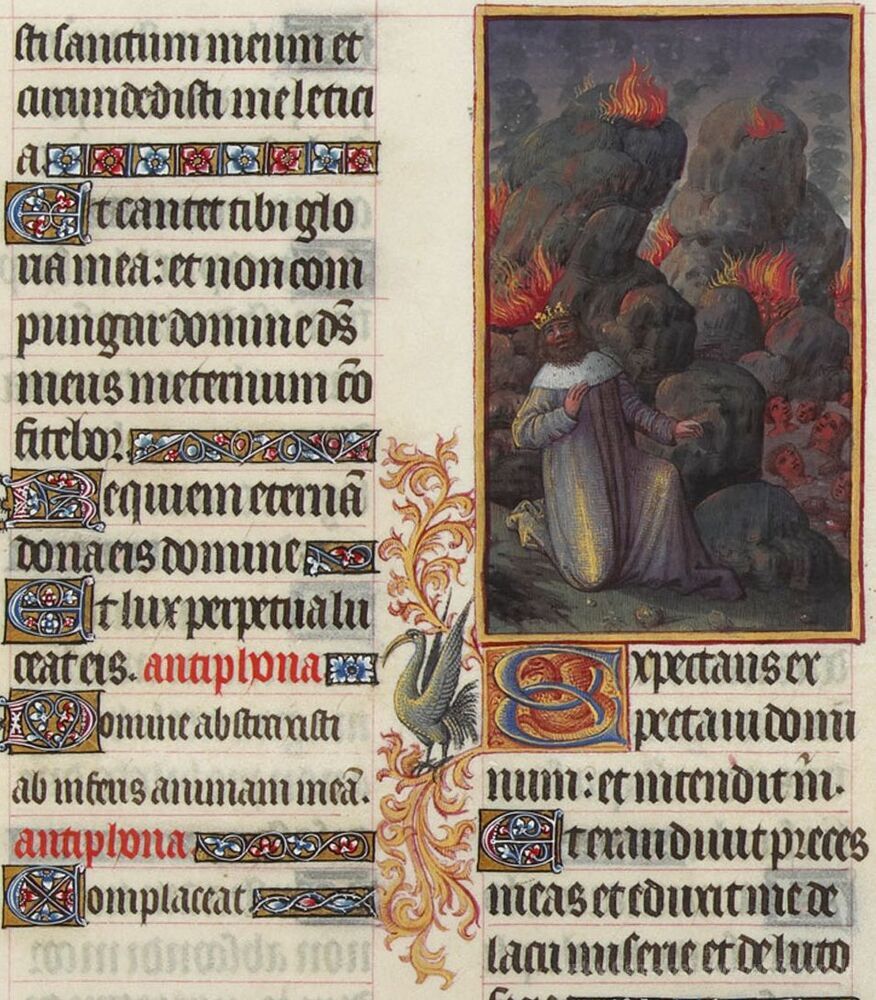 sti sanctum meum et
circundedisti me leticı
a.
Et cantet tibi glo
ria mea: et non com
pungar domine ds̄
meus in eternum cō
fitebor.
Requiem eternā
dona eis domine
Et lux perpetua lu
ceat eis. antiphona
Domine abstraxisti
ab inferis animam meā.
antiphona
Complaceat
Expectans ex
pectaui domi
num: et intendit m̄.
Et exaudiuit preces
meas et eduxit me de
lacu miserie et de luto